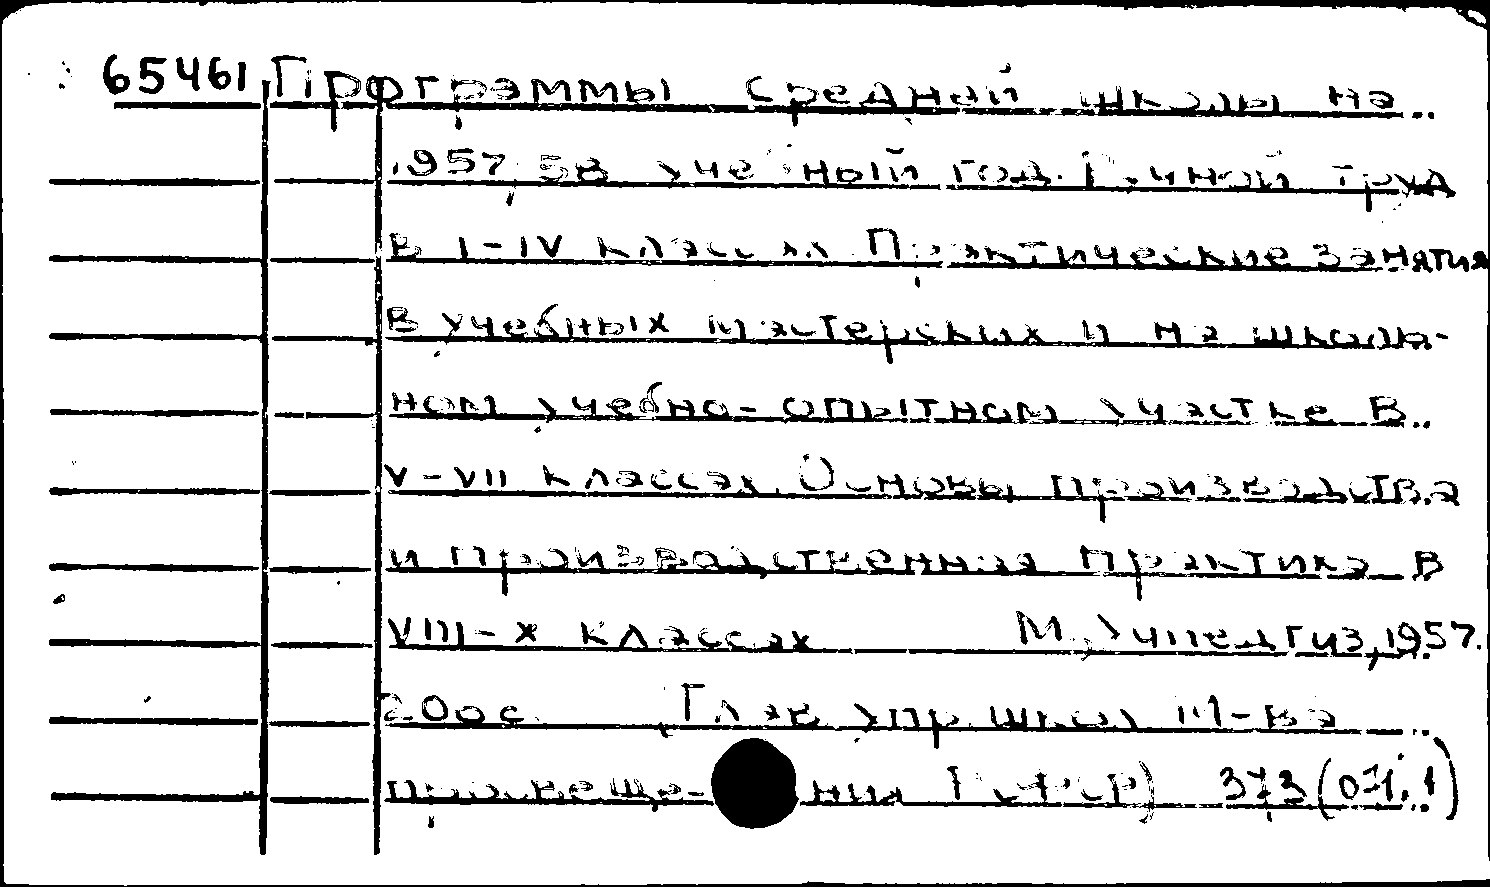 65461 Программы средней школы на
1957/58 учебный год. Ручной труд
в I-IV классах Практические занятия
в учебных мастерских и на школь-
ном учебно-опытном участке в
V-VII классах. Основы производства
и производственная практика в
VIII-X классах М., Учпедгиз, 1957.
200 с. Глав упр школ М-ва
просвеще-ния РСФСР) 373(07.1)